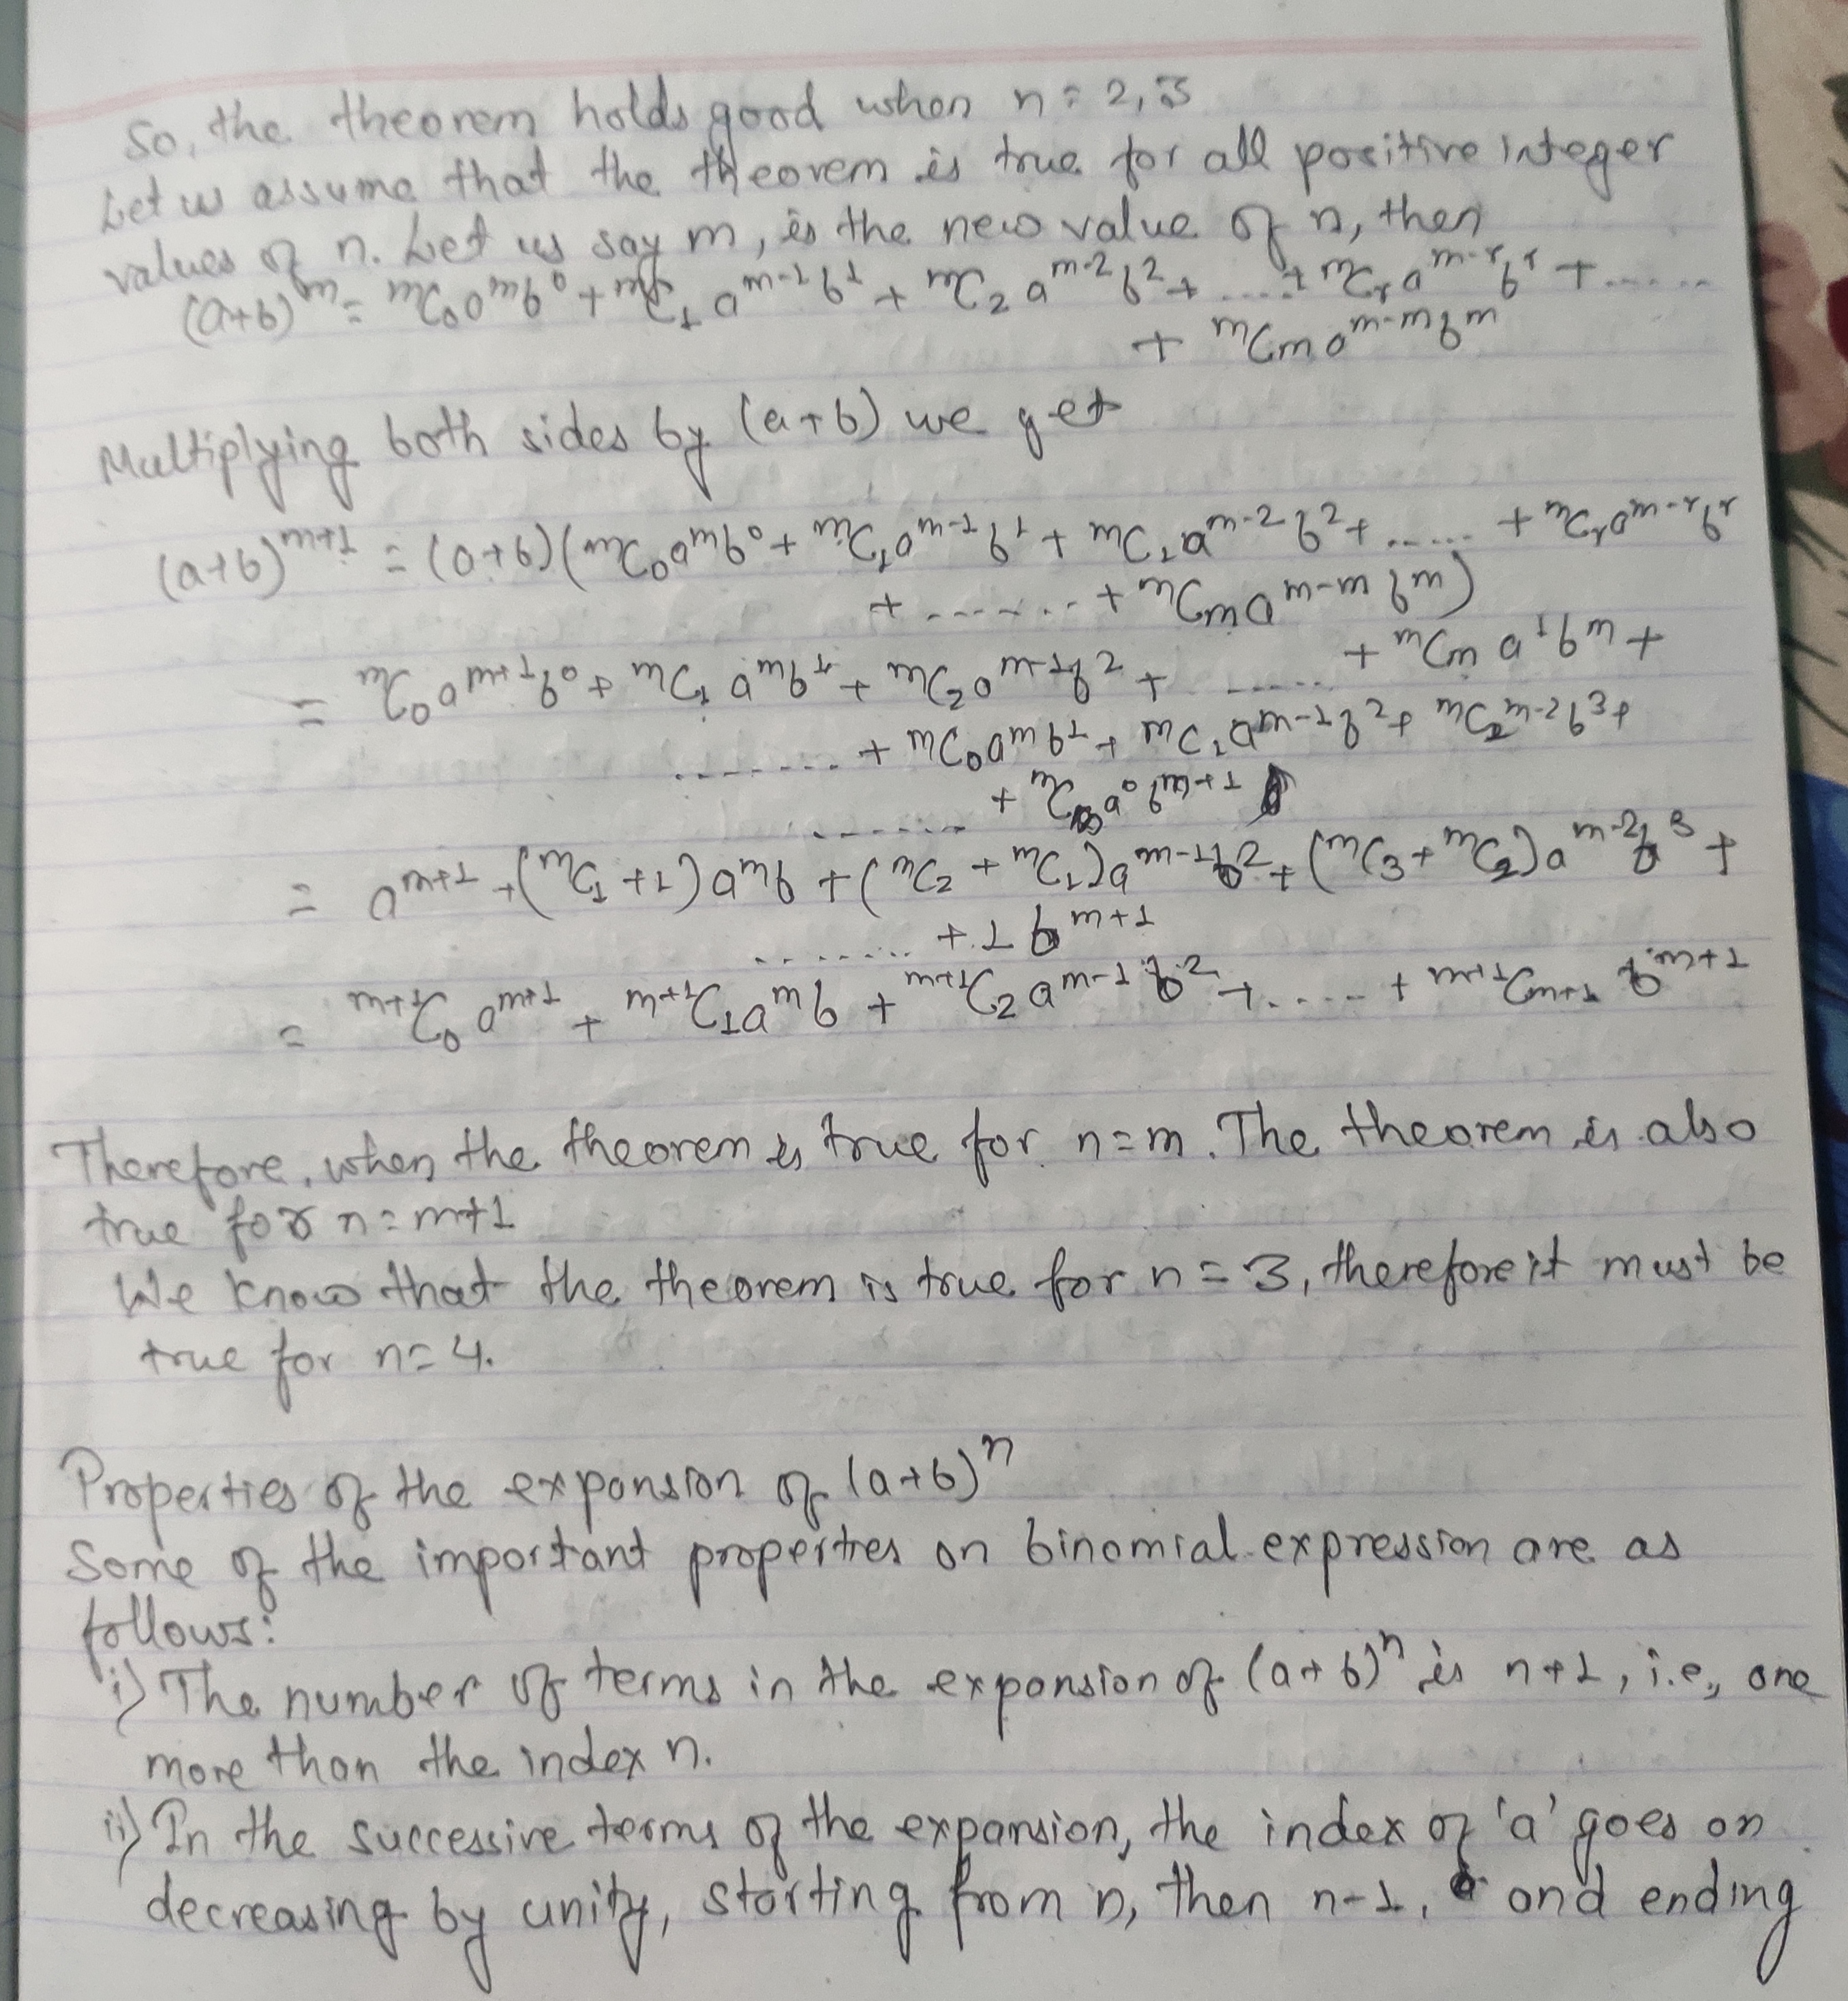 So, the theorem holds good when n = 2, 3
Let us assume that the theorem is true for all positive integer
values of n. Let us say m, is the new value of n, then
(a+b)^m = ^mC₀a^m b^0 + ^mC₁a^m-1 b^1 + ^mC₂a^m-2 b^2 + ..... + ^mCᵣa^m-r b^r + ......
+ ^mCm a^m-m b^m
Multiplying both sides by (a+b) we get
(a+b)^m+1 = (a+b)(^mC₀a^m b^0 + ^mC₁a^m-1 b^1 + ^mC₂a^m-2 b^2 + ...... + ^mCᵣa^m-r b^r
+ ....... + ^mCm a^m-m b^m)
= ^mC₀a^m+1 b^0 + ^mC₁a^m b^1 + ^mC₂a^m-1 b^2 + ...... + ^mCm a^1 b^m +
........ + ^mC₀a^m b^1 + ^mC₁a^m-1 b^2 + ^mC₂ ^m-2 b^3 +
....... + ^mC a^0 b^m+1
= a^m+1 + (^mC₁+1)a^m b + (^mC₂ + ^mC₁)a^m-1 b^2 + (^mC₃ + ^mC₂)a^m-2 b^3 +
........ + 1 b^m+1
= ^m+1C₀ a^m+1 + ^m+1C₁a^m b + ^m+1C₂a^m-1 b^2 + ..... + ^m+1Cm+1 b^m+1
Therefore, when the theorem is true for n=m. The theorem is also
true for n = m+1
We know that the theorem is true for n = 3, therefore it must be
true for n = 4.
Properties of the expansion of (a+b)^n
Some of the important properties on binomial expression are as
follows:
i) The number of terms in the expansion of (a+b)^n is n+1, i.e., one
more than the index n.
ii) In the successive terms of the expansion, the index of 'a' goes on
decreasing by unity, starting from n, then n-1, and ending